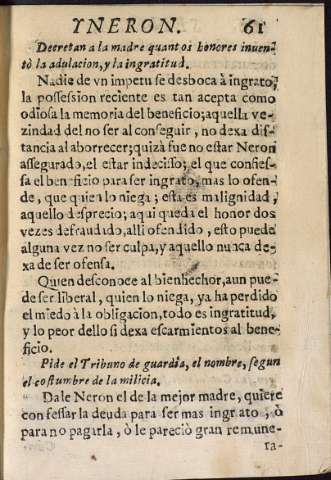 YNERON. 61
Decretan a la madre quantos honores inuen-
tò la adulacion, y la ingratitud.
Nadie de vn impetu se desboca à ingrato,
la possession reciente es tan acepta como
odiosa la memoria del beneficio; aquella ve-
zindad del no ser al conseguir, no dexa dis-
tancia al aborrecer; quizà fue no estar Neron
assegurado, el estar indeciso; el que confies-
sa el beneficio para ser ingrato, mas lo ofen-
de, que quien lo niega; esta es malignidad,
aquello desprecio; aqui queda el honor dos
vezes defraudado, alli ofendido, esto puede
alguna vez no ser culpa, y aquello nunca de-
xa de ser ofensa.
Quien desconoce al bienhechor, aun pue-
de ser liberal, quien lo niega, ya ha perdido
el miedo à la obligacion, todo es ingratitud,
y lo peor dello si dexa escarmientos al bene-
ficio.
Pide el Tribuno de guardia, el nombre, segun
el costumbre de la milicia.
Dale Neron el de la mejor madre, quiere
confessar la deuda para ser mas ingrato, ò
para no pagarla, ò le pareciò gran remune-
ra-